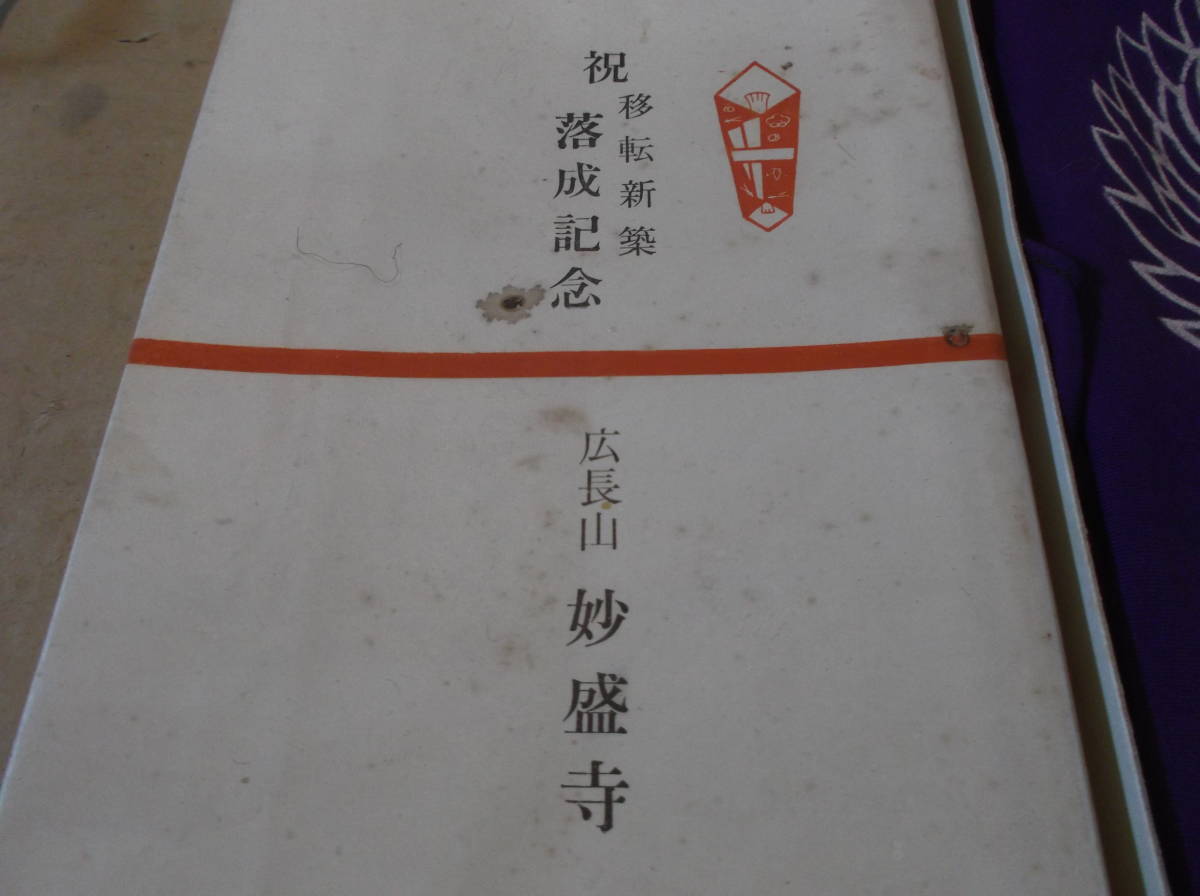 祝
移転新築
落成記念
広長山 妙盛寺